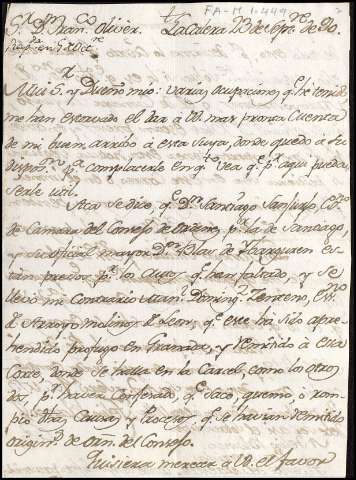 FA-M 1.449
Sr. Dn. Franco. Oliver. La Calera 23 de Spre. de 90.
Mui Sr. y Dueño mio: varias ocupaciones q.e he tenido
me han estorvado el dar à Vm. mas pronta Cuenta
de mi buen arribo à esta suya, donde quedo à su
dispos.on p.a complacerle en q.to vea q.e p.r aqui pueda
serle util.
Acà se dice q.e D.n Santiago
de Camara del Consejo de Ordenes, p.r la de Santiago,
y su oficial mayor D.n Blas de Yzarguren es-
tàn presos p.r los Autos q.e han faltado, y se
llevò mi Contrario Fran.co Doming.z Zenteno, ess.no
de Arroyo molinos de Leon, q.e este hà sido apre-
hendido profugo en Granada, y remitido à esta
Corte, donde se halla en la Carcel, como los otros
dos, p.r haver Confesado, q.e sacò, quemò, ò rom-
piò otras Causas, y Procesos, q.e se havian remitido
origin.s de orn. del Consejo.
Quisiera merecer à Vm. el favor